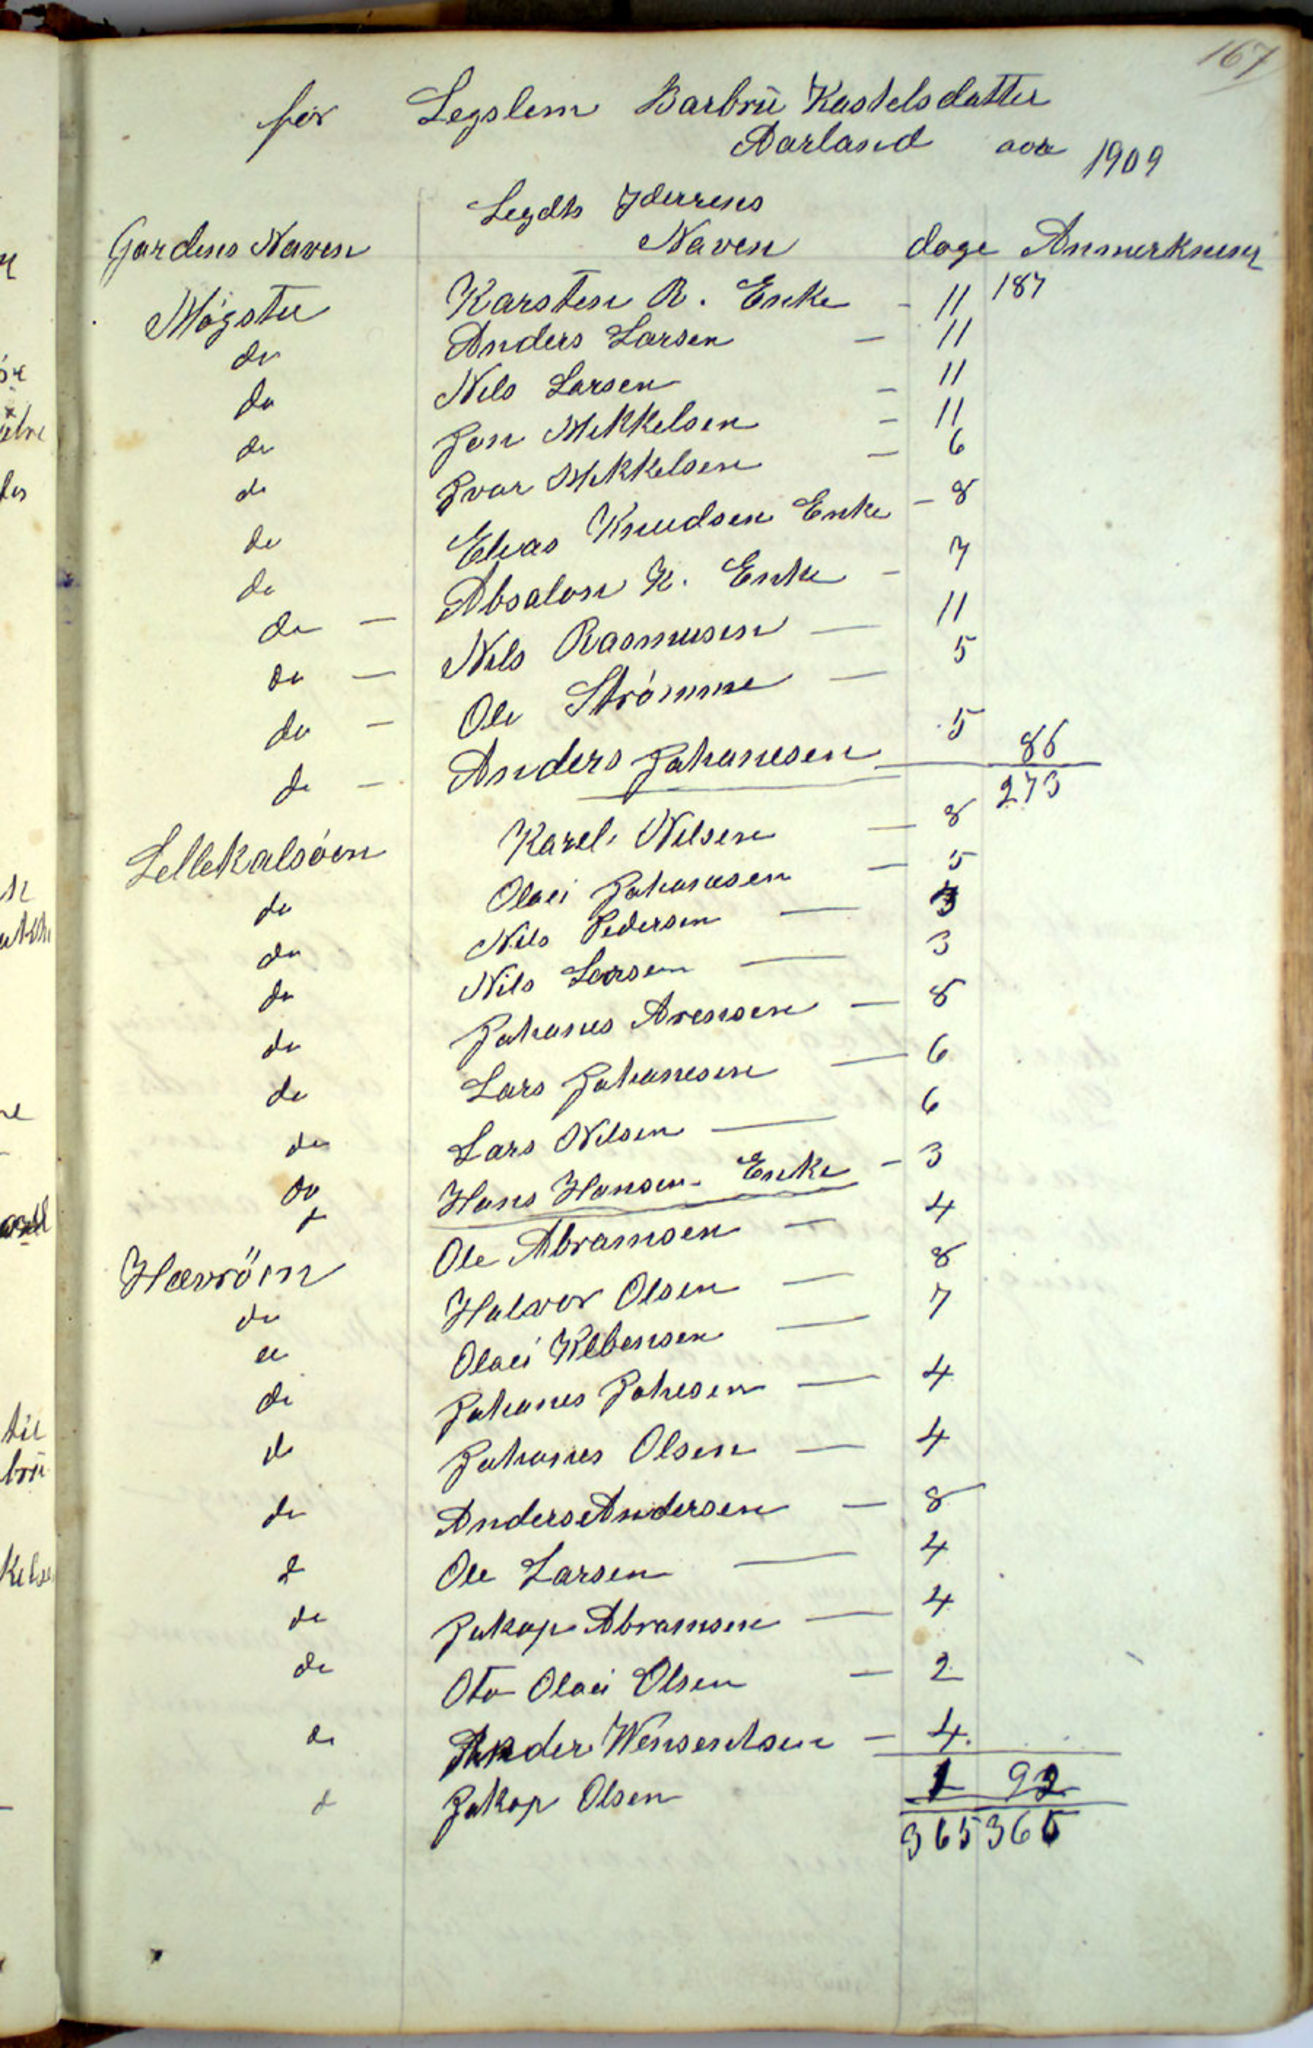 167
for Legslem Barbrü Kastelsdatter
Aarland aar 1909
Legdts Yderrens
Gardens Naven Naven dage Anmerkning
Møgster Karsten R. Enke - 11 187
do Anders Larsen - 11
do Nils Larsen - 11
do Jon Mikkelsen - 11
do Ivar Mikkelsen - 6
do Elias Knudsen Enke - 8
do Absalon K. Enke - 7
do - Nils Rasmusen - 11
do - Ole Strømme - 5
do - Anders Johanesen 5 86
do - 273
Lellekalsøen Karel Nilsen - 8
do Olai Johanesen - 5
do Nils Pedersen - 3
do Nils Larsen - 3
do Johanes Arensen - 8
do Lars Johanesen - 6
do Lars Nilsen - 6
do Hans Hansen Enke - 3
d Ole Abramsen - 4
Hævröen Halvor Olsen - 8
do Olai Klbensen - 7
do Johanes Johesen - 4
do Johanes Olsen - 4
do Anders Andersen - 8
do Ole Larsen - 4
d Jakop Abramsen - 4
do Oto Olai Olsen - 2
do Ander Wensentsen - 4
d Jakop Olsen 1 92
365 365